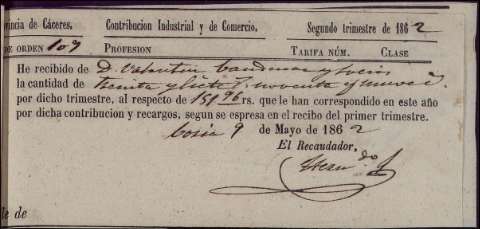 incia de Cáceres. Contribucion Industrial y de Comercio. Segundo trimestre de 1862
DE ORDEN 107 PROFESION TARIFA NÚM. CLASE
He recibido de D. Valentin y Socios
la cantidad de treinta y siete r. noventa y nueve c.
por dicho trimestre, al respecto de 151 96 rs. que le han correspondido en este año
por dicha contribucion y recargos, segun se espresa en el recibo del primer trimestre.
Coria 9 de Mayo de 1862
El Recaudador,
le de